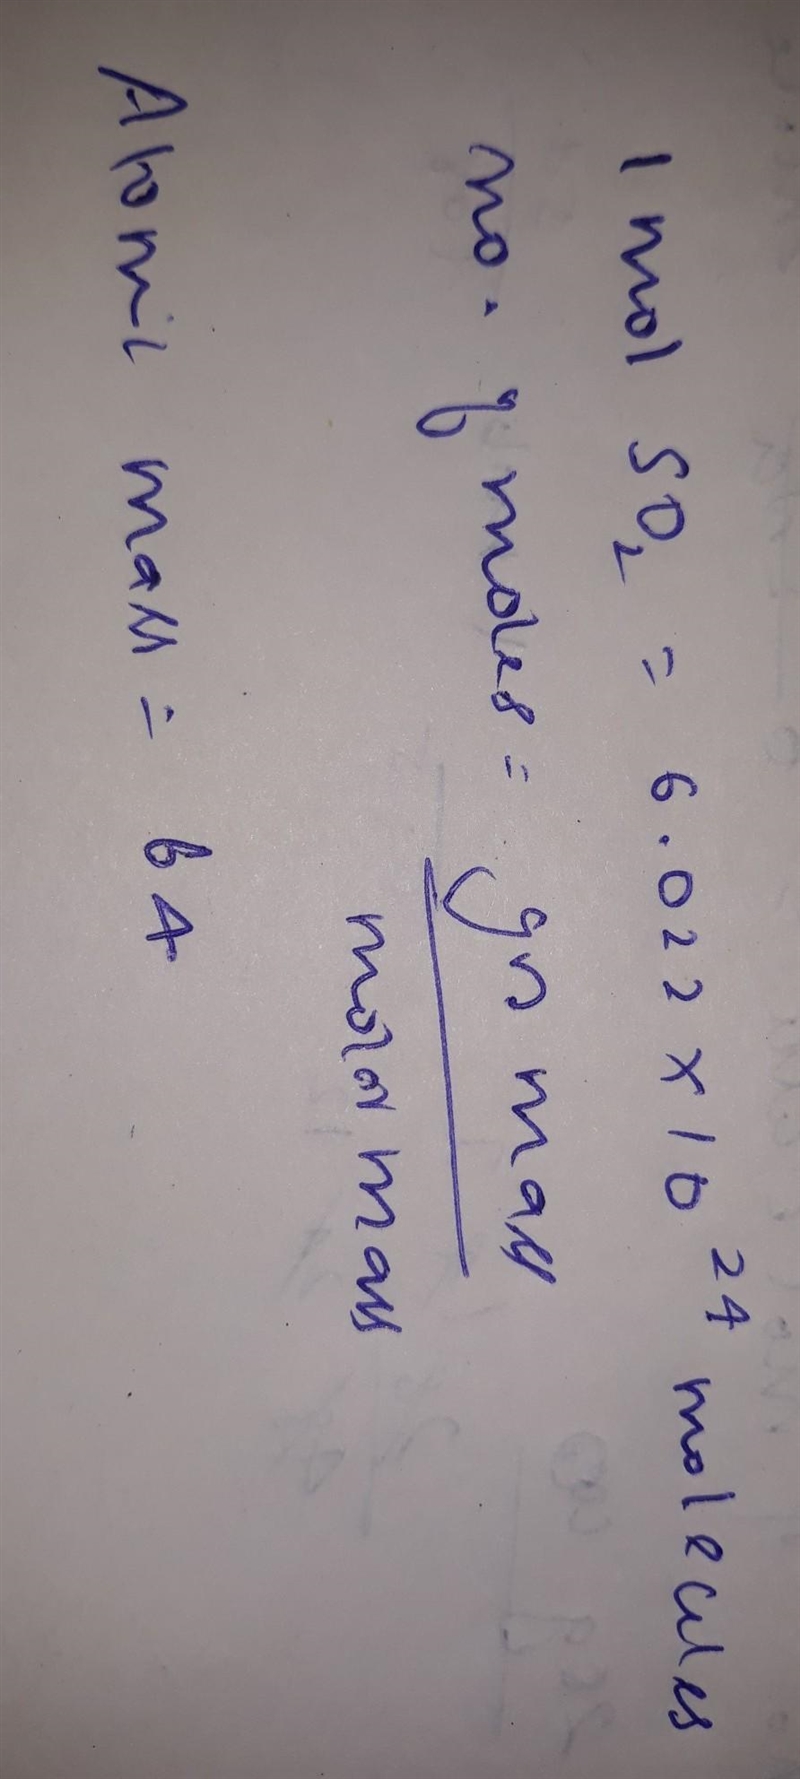 1 mol SO₂ = 6.022 x 10²⁴ molecules
no. of moles = gm mass
molar mass
Atomic mass = 64